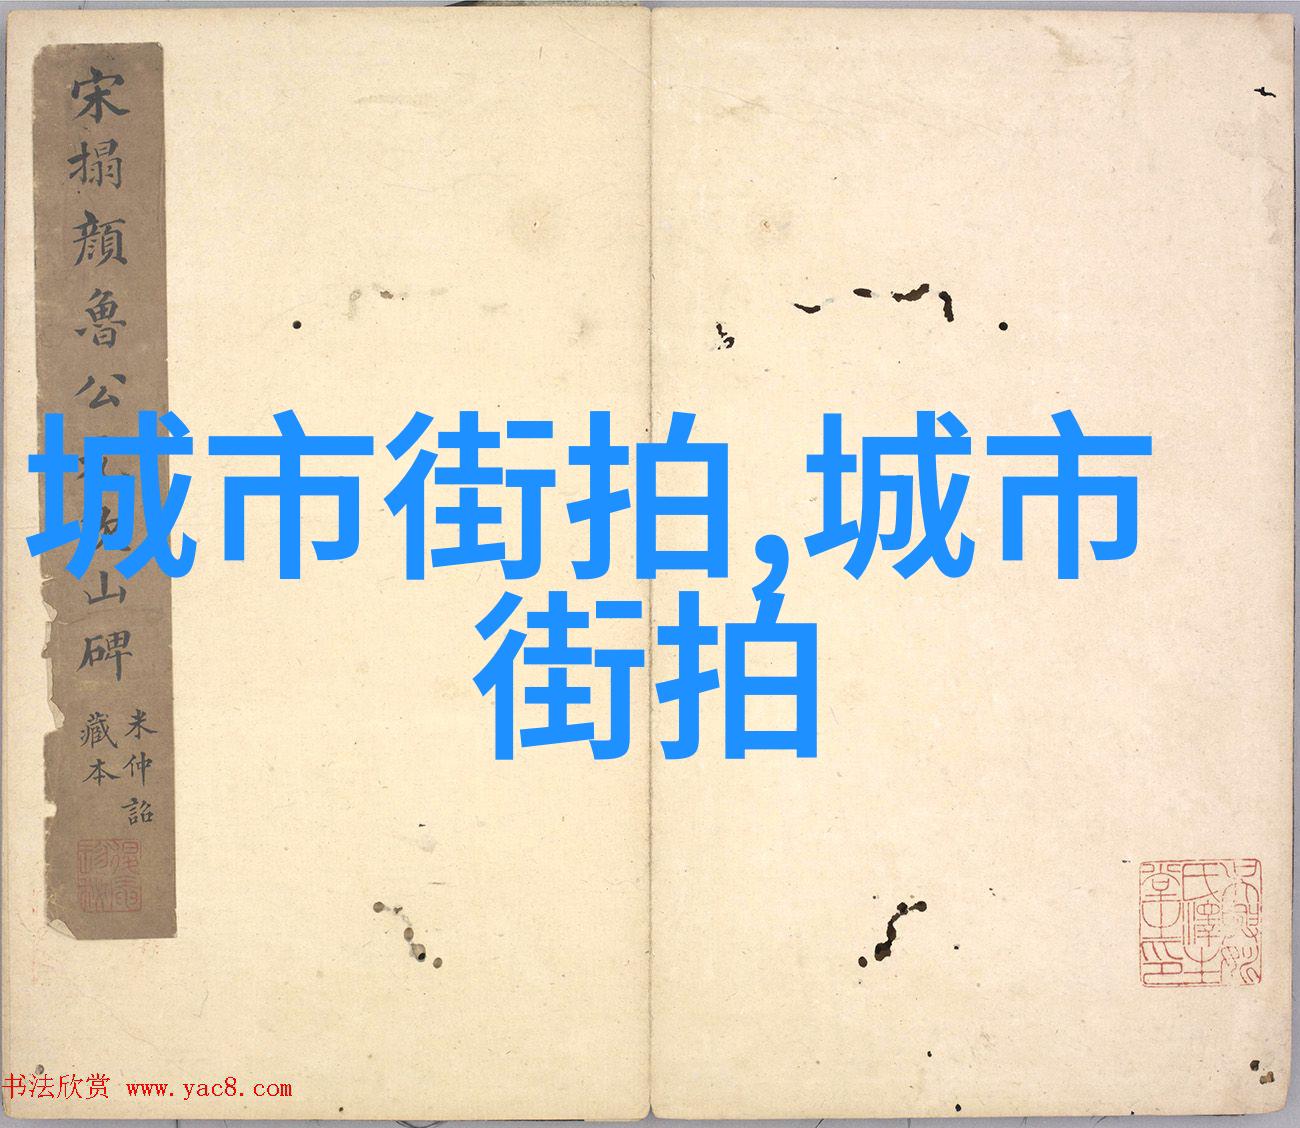 宋搨顔魯公
山碑
米仲詔
藏本
城市街拍,城市
街拍
书法欣赏 www.yac8.com